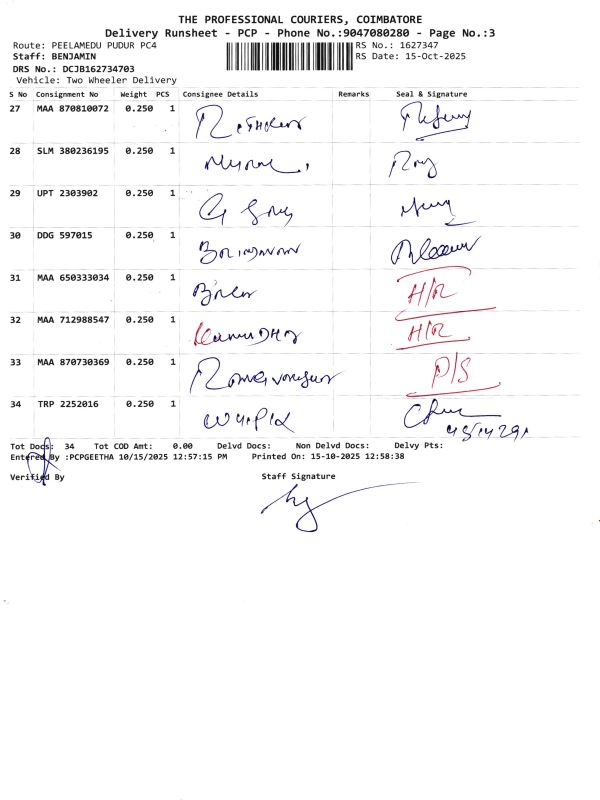 THE PROFESSIONAL COURIERS, COIMBATORE
Delivery Runsheet - PCP - Phone No.:9047080280 - Page No.:3
Route: PEELAMEDU PUDUR PC4 RS No.: 1627347
Staff: BENJAMIN RS Date: 15-Oct-2025
DRS No.: DCJB162734703
Vehicle: Two Wheeler Delivery
S No Consignment No Weight PCS Consignee Details Remarks Seal & Signature
27 MAA 870810072 0.250 1
28 SLM 380236195 0.250 1
29 UPT 2303902 0.250 1
30 DDG 597015 0.250 1
31 MAA 650333034 0.250 1 H/R
32 MAA 712988547 0.250 1 H/R
33 MAA 870730369 0.250 1 P/S
34 TRP 2252016 0.250 1
Tot Docs: 34 Tot COD Amt: 0.00 Delvd Docs: Non Delvd Docs: Delvy Pts:
Entered By :PCPGEETHA 10/15/2025 12:57:15 PM Printed On: 15-10-2025 12:58:38
Verified By Staff Signature